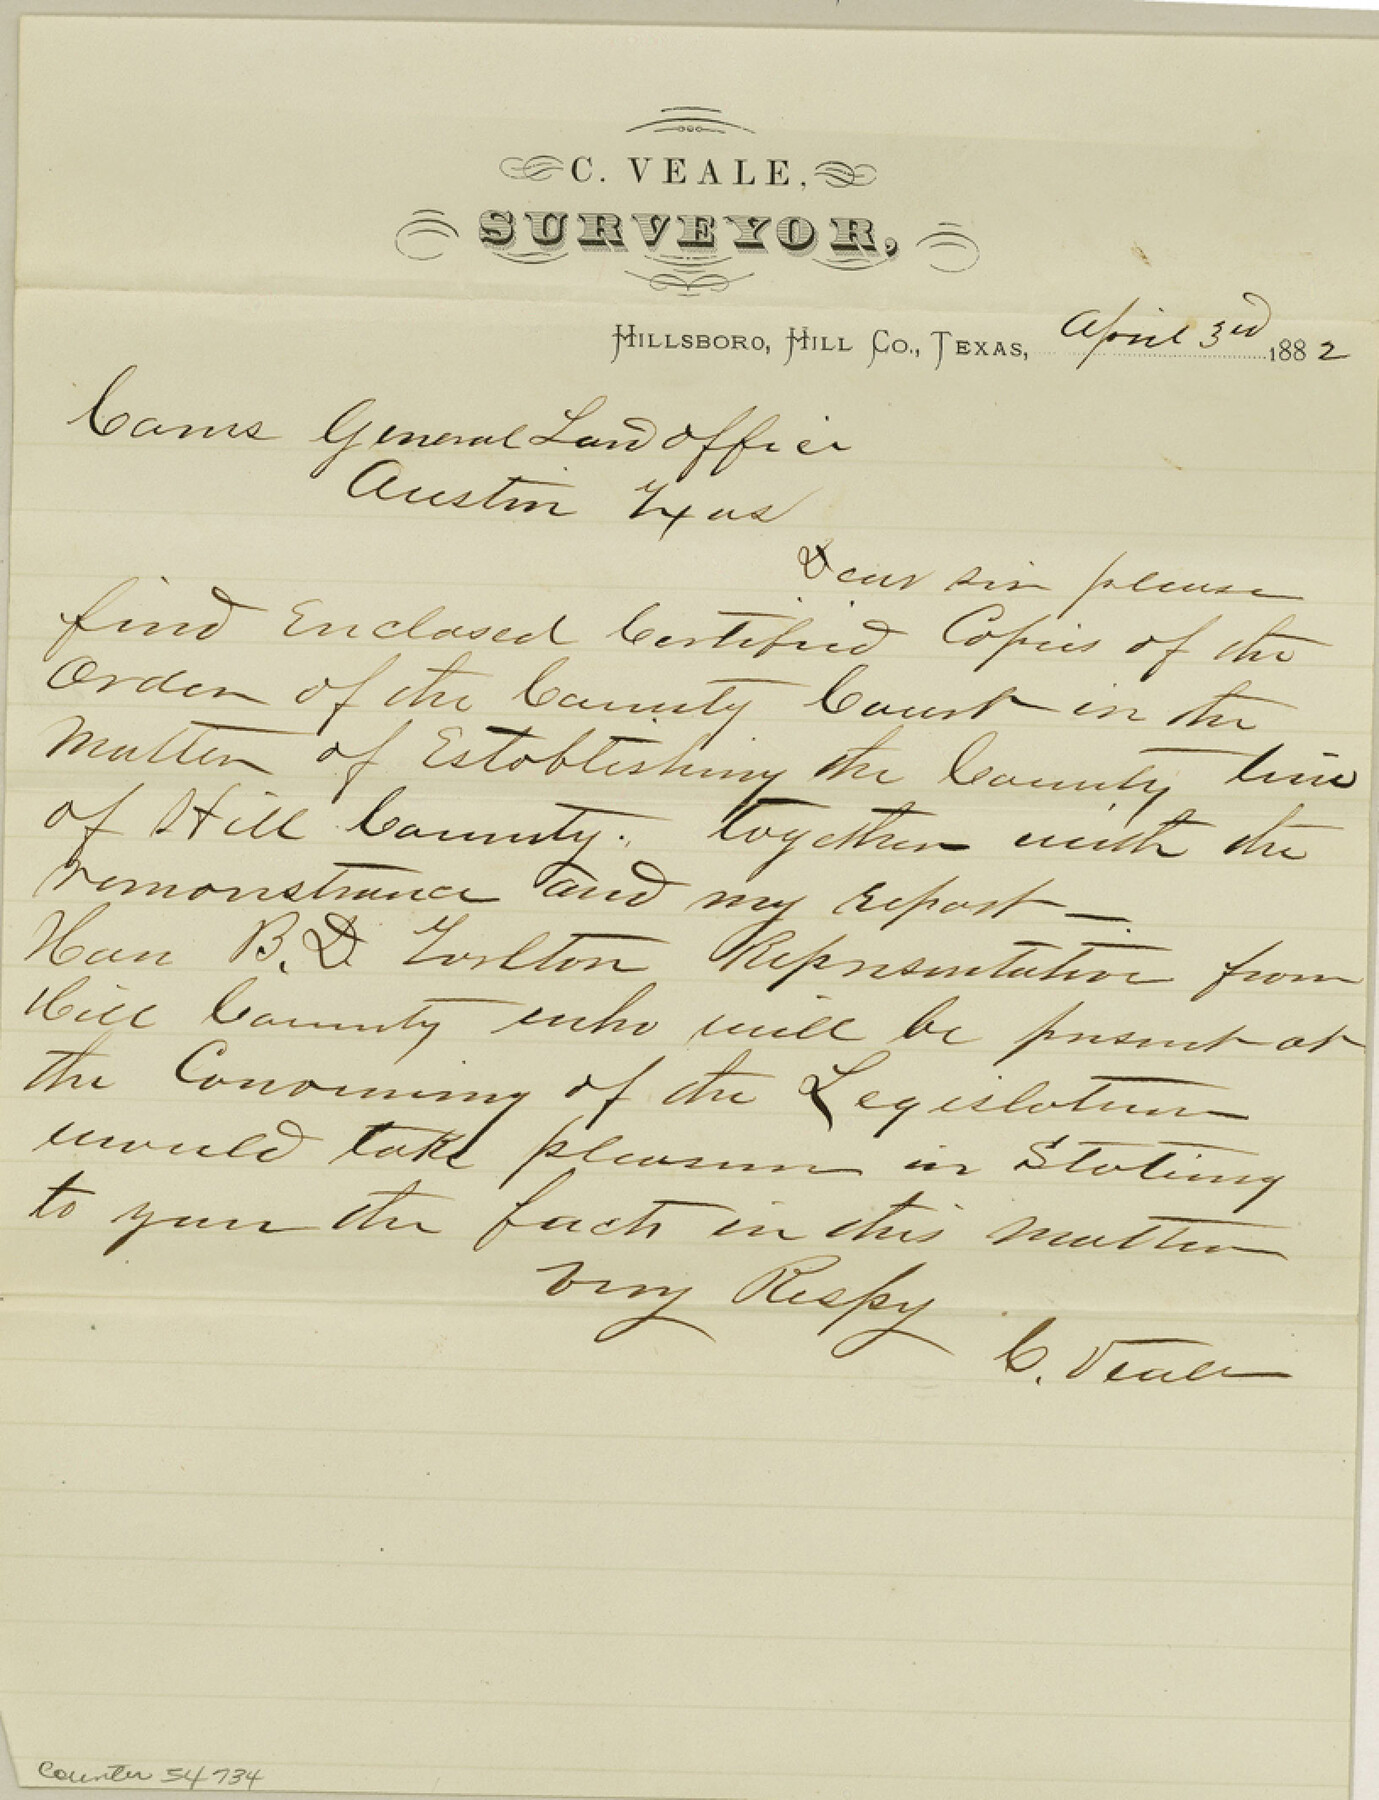 C. VEALE,
SURVEYOR,
HILLSBORO, HILL CO., TEXAS, April 3rd 1882
Coms General Land office
Austin Texas
Dear sir please
find Enclosed Certified Copies of the
Order of the County Court in the
Matter of Establishing the County line
of Hill County. together with the
remonstrance and my report —
Hon B. D. Tarlton Representative from
Hill County who will be present at
the Convening of the Legislature
would take pleasure in Stating
to you the facts in this Matter
very Respy
C. Veale
Counter 54734